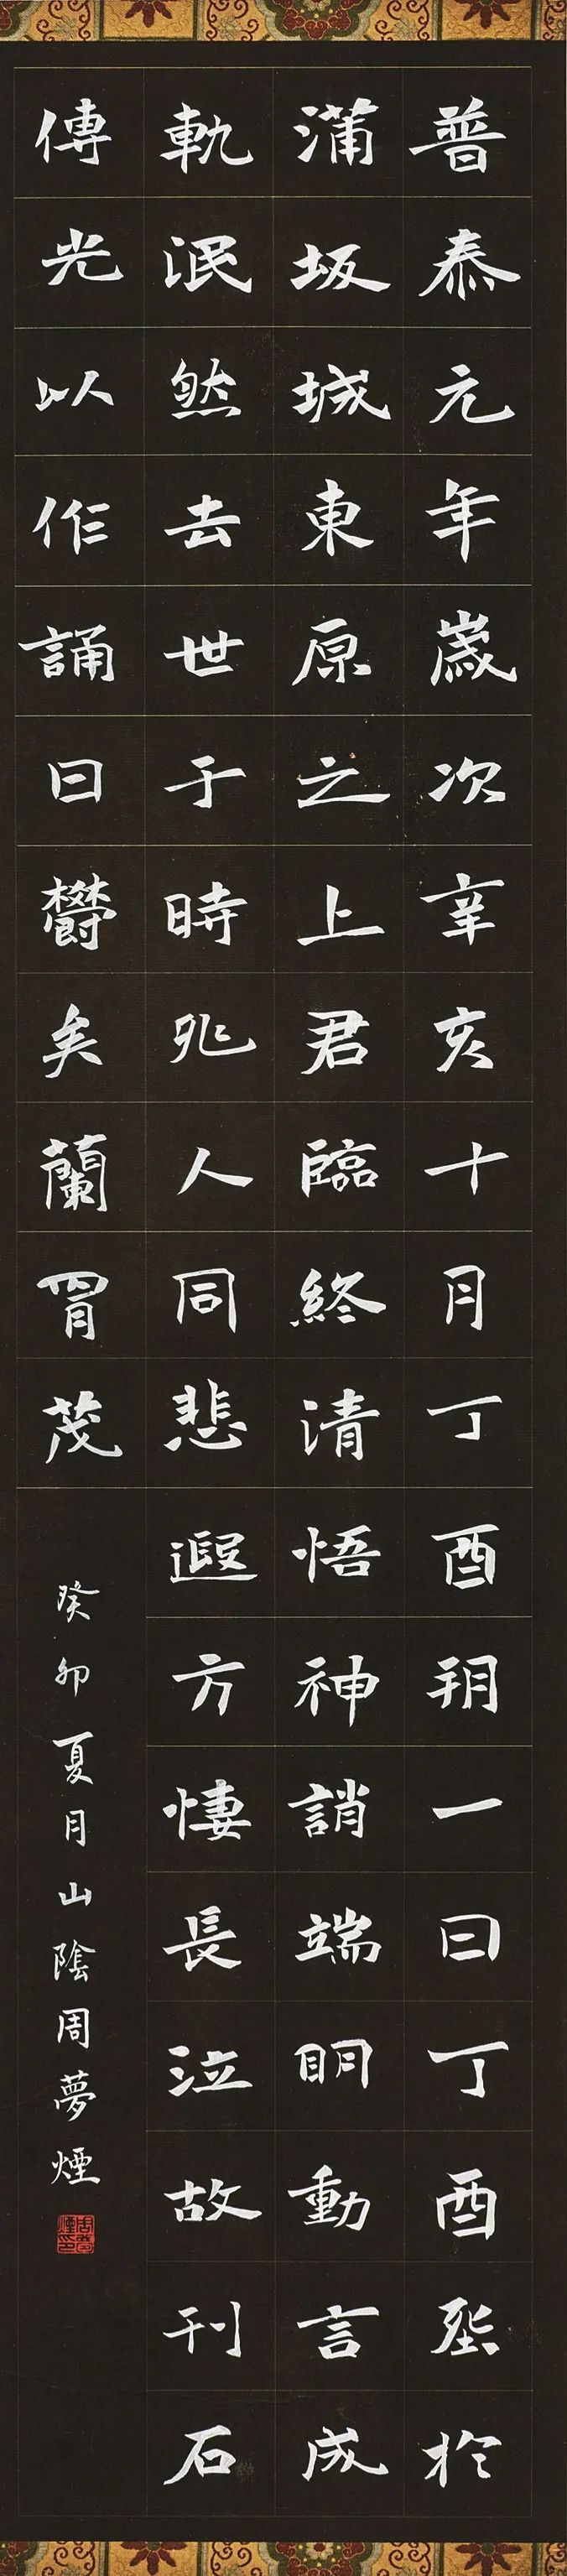 普泰元年歲次辛亥十月丁酉朔一日丁酉薨於
蒲坂城東原之上君臨終清悟神誚端明動言成
軌泯然去世于時兆人同悲遐方悽長泣故刊石
傳光以作誦曰鬱矣蘭胃茂
癸卯夏月山陰周夢煙